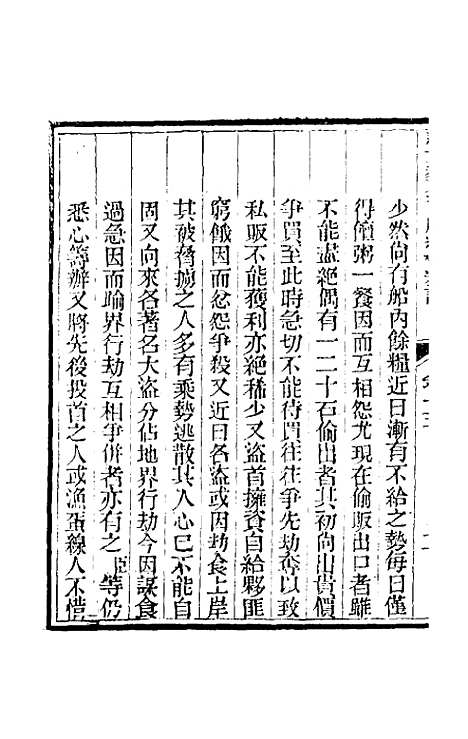 少然尚有船內餘糧近日漸有不給之勢每日僅
得饘粥一餐因而互相怨尤現在偷販出口者雖
不能盡絕偶有一二十石偷出者其初尚出貴價
爭買至此時急切不能待買往往爭先劫奪以致
私販不能獲利亦絕稀少又盜首擁資自給夥匪
窮餓因而忿怨爭殺又近日各盜或因劫食上岸
其被脅擄之人多有乘勢逃散其人心已不能自
固又向來各著名大盜分佔地界行劫今因謀食
過急因而踰界行劫互相爭併者亦有之臣等仍
悉心籌辦又將先後投首之人或漁蛋線人不惜